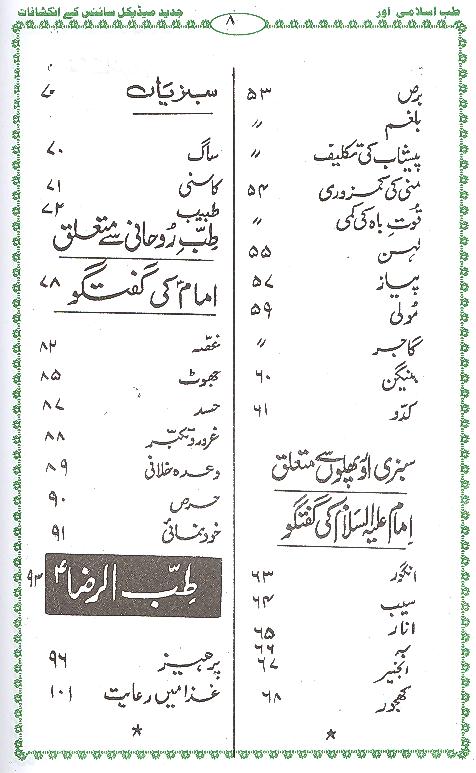 طب اسلامی اور
۸
جدید میڈیکل سائنس کے انکشافات
برص ۵۳
بلغم ″
پیشاب کی تکلیف ″
منی کی کمزوری ۵۴
قوت باہ کی کمی ″
لہسن ۵۵
پیاز ۵۷
مُولی ۵۹
گاجر ″
بینگن ۶۰
کدّو ۶۱
سبزی اور پھلوں سے متعلق
اِمام علیہ السلام کی گفتگو
انگور ۶۳
سیب ۶۴
انار ۶۵
بہ ۶۶
انجیر ۶۷
کھجور ۶۸
*
سبزیاں ۷۰
ساگ ۷۰
کاسنی ۷۱
طبیب ۷۲
طِبِّ رُوحانی سے متعلق
امامؑ کی گفتگو ۷۸
غصّہ ۸۲
جھوٹ ۸۵
حسد ۸۷
غرور و تکبّر ۸۸
وعدہ خلافی ۸۹
حرص ۹۰
خودنمائی ۹۱
طِبّ الرضاؑ ۹۳
پرھیز ۹۶
غذا میں رعایت ۱۰۱
*